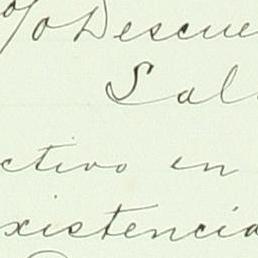 % Descue
Sal
ctivo en
xistencia